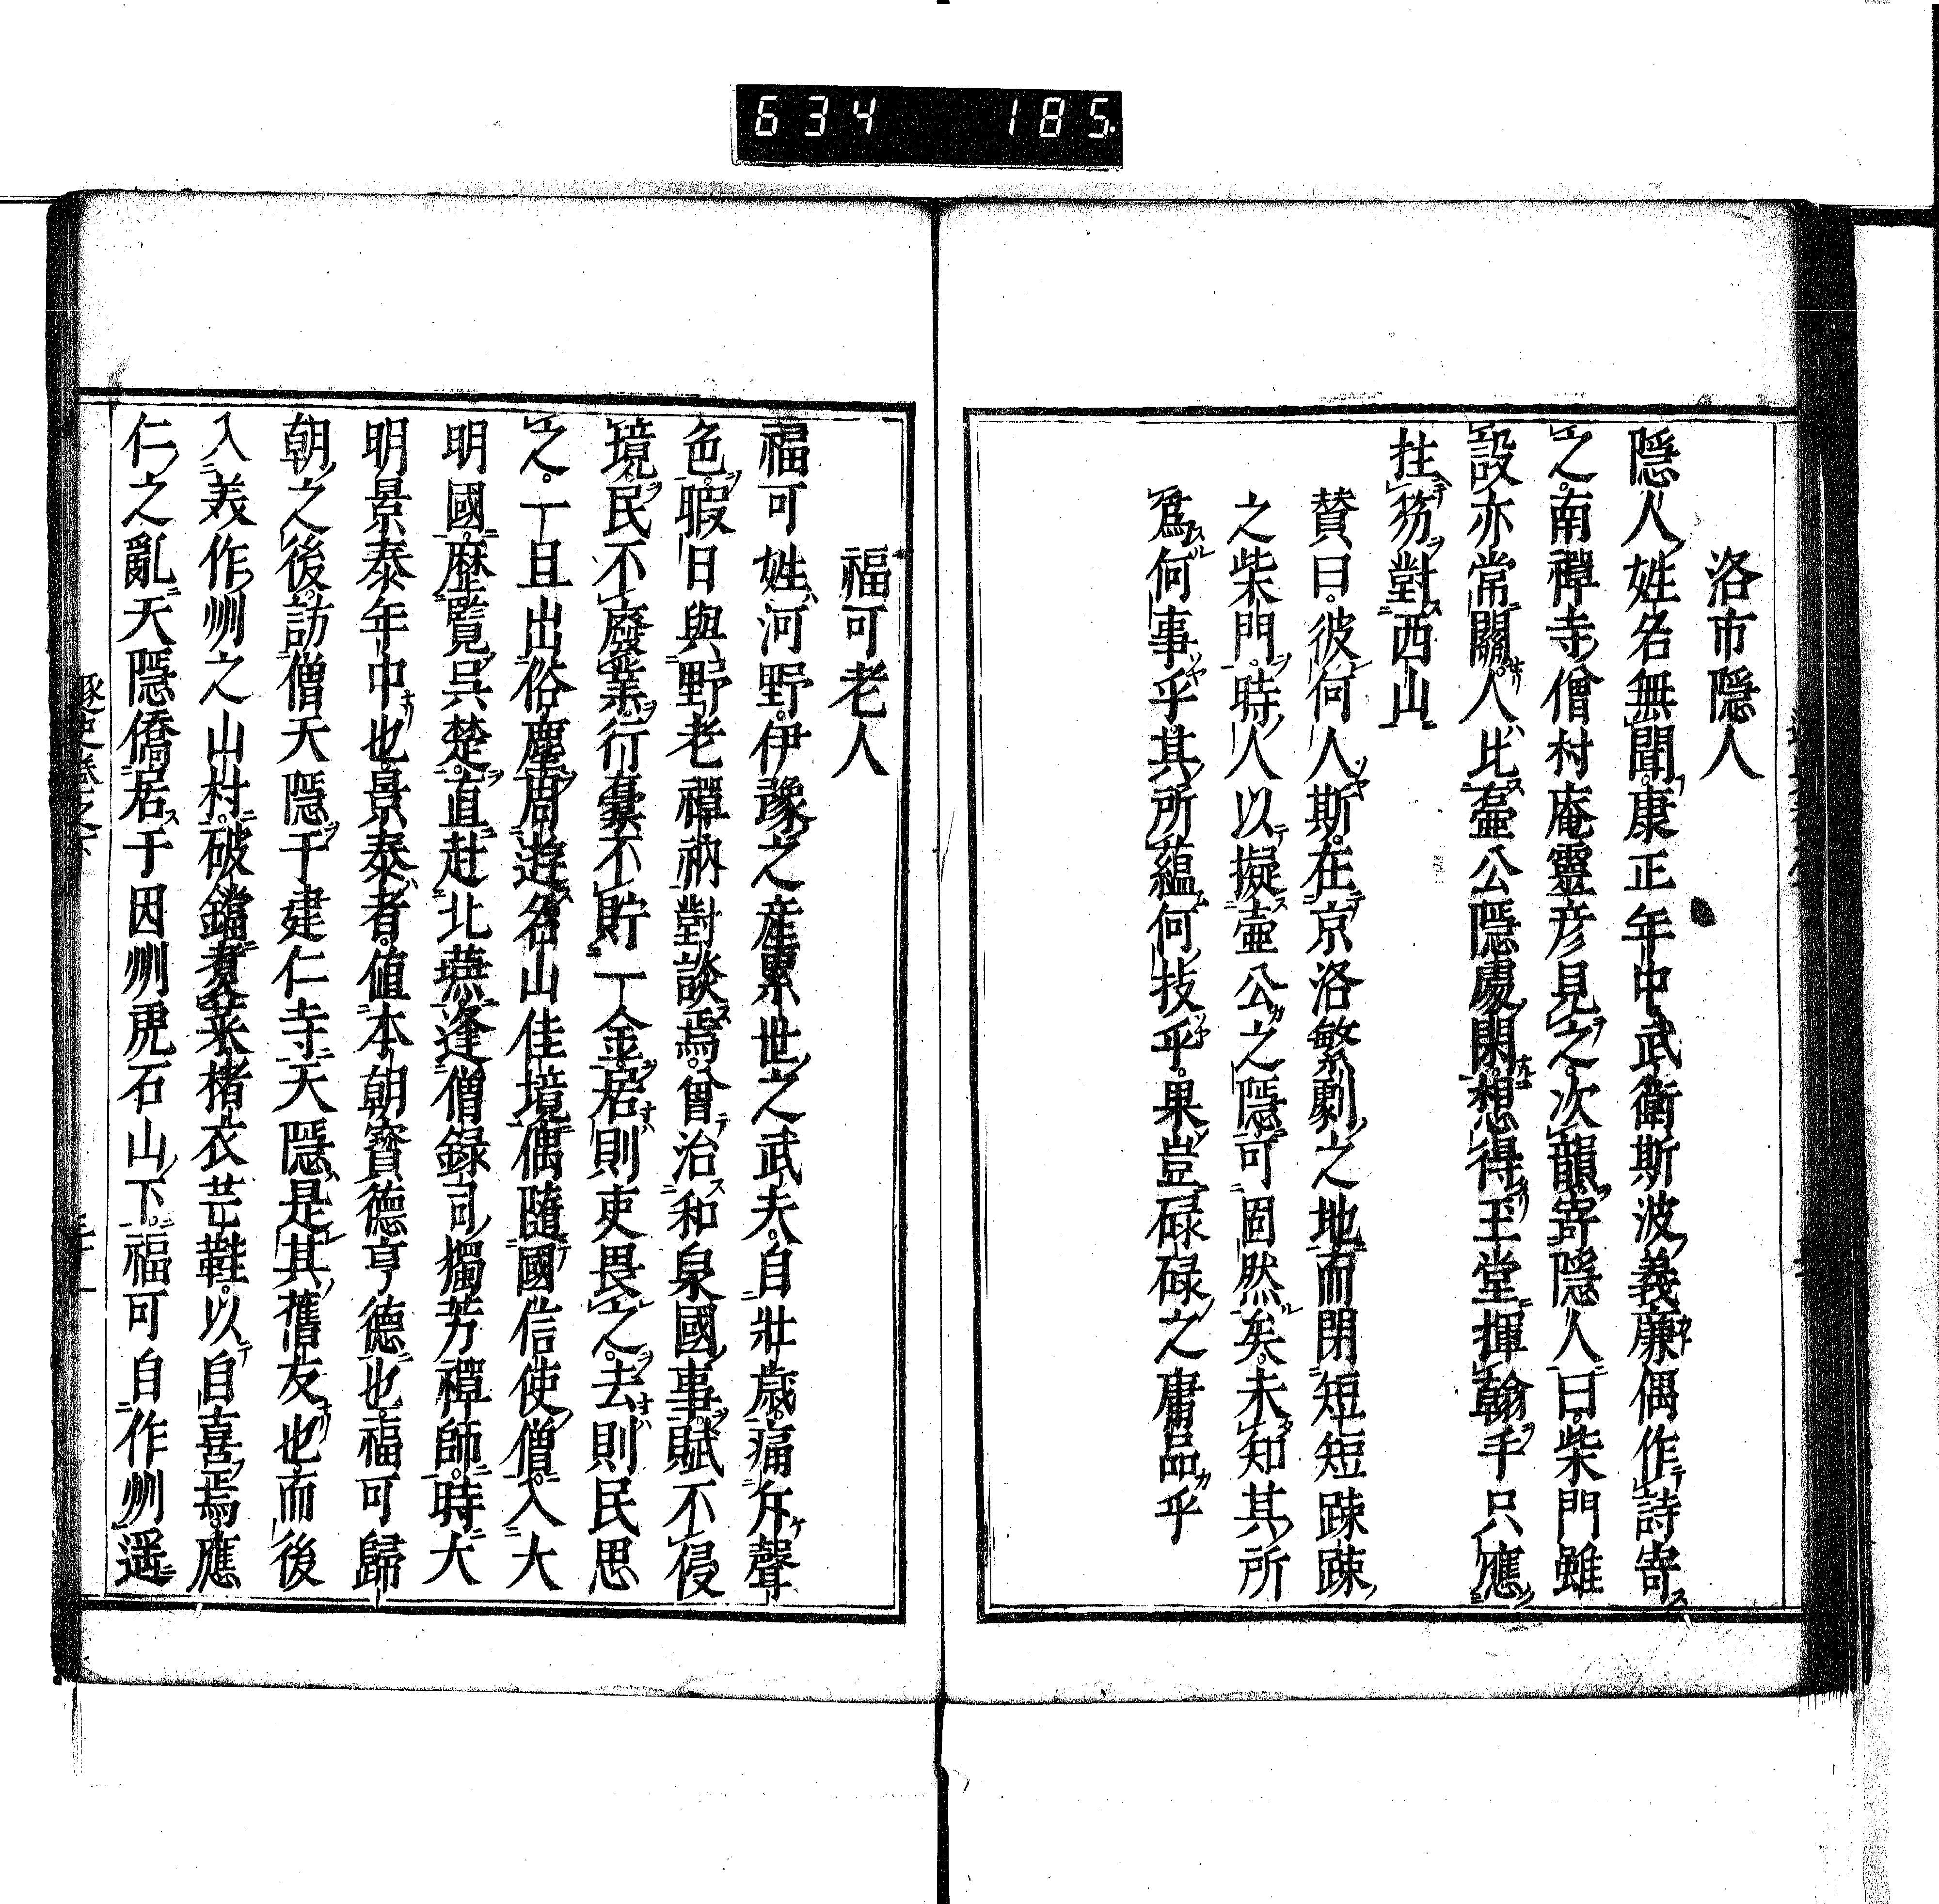 634 185
洛市隱人
隱人姓名無聞康正年中武衛斯波義廉偶作詩寄
之南禪寺僧村庵靈彦見之次韻寄隱人曰柴門雖
設亦常關人比壺公隱處閑想得玉堂揮翰手只應
拄笏對西山
賛曰彼何人斯在京洛繁劇之地而閉短短踈踈
之柴門時人以擬壷公之隱可固然矣未知其所
爲何事乎其所蘊何技乎果豈碌碌之庸品乎
福可老人
福可姓河野伊豫之産累世之武夫自壯歳痛斥聲
色暇日與野老禪衲對談焉曾治和泉國事賦不侵
境民不廢業行橐不貯一金居則吏畏之去則民思
之一旦出俗塵周遊名山佳境偶隨國信使僧入大
明國歷覧呉楚直赴北燕逢僧録司獨芳禪師時大
明景泰年中也景泰者値本朝寳德亨德也福可歸
朝之後訪僧天隱于建仁寺天隱是其舊友也而後
入美作州之山村破鐺煑菜楮衣芒鞋以自喜焉應
仁之亂天隱僑居于因州虎石山下福可自作州遥